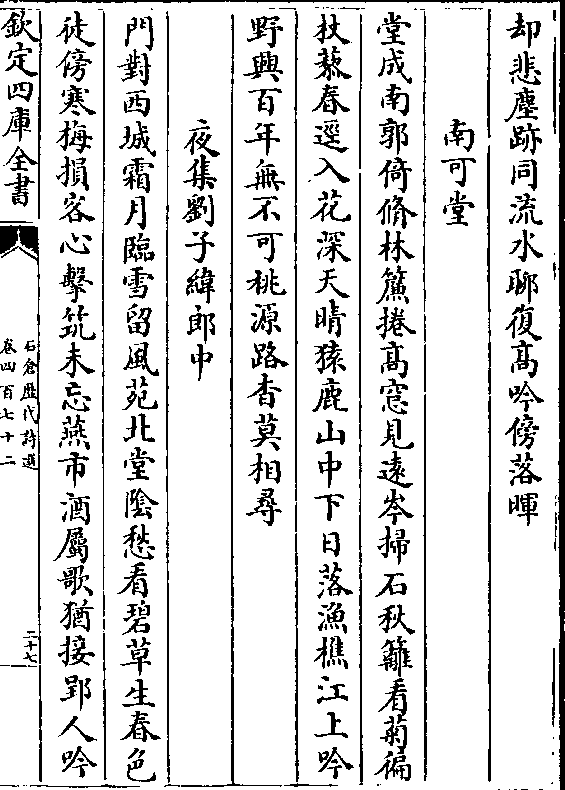 却悲塵跡同流水聊復髙吟傍落暉
南可堂
堂成南郭倚脩林簾捲髙窓見遠岑掃石秋籬看菊徧
杖藜春逕入花深天晴猿鹿山中下日落漁樵江上吟
野興百年無不可桃源路杳莫相尋
夜集劉子緯郎中
門對西城霜月臨雪留風苑北堂隂愁看碧草生春色
徒傍寒梅損客心擊筑未忘燕市酒屬歌猶接郢人吟
欽定四庫全書
石倉歴代詩選
卷四百七十二
二十七